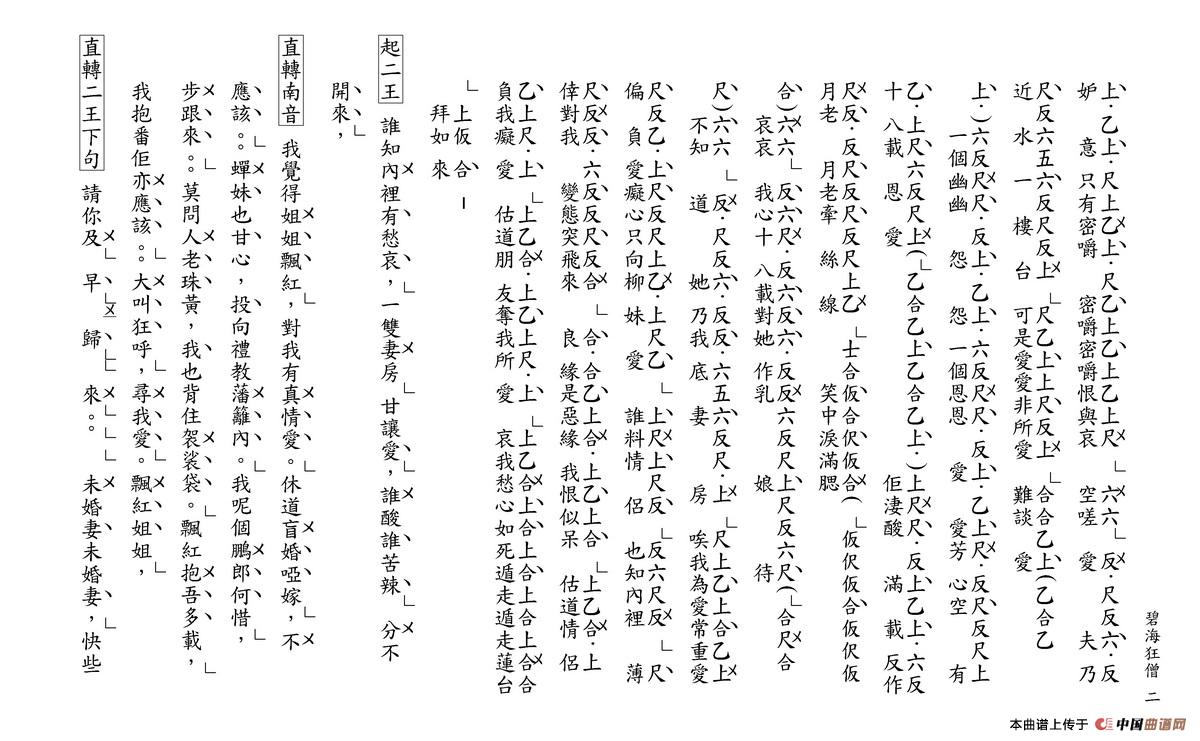 碧海狂僧 二
上·乙上·尺上乙上·尺乙上乙上乙上尺 六六 反·尺反六·反
妒 意 只有密嚼 密嚼密嚼恨與哀 空嗟 愛 夫乃
尺反六五六反尺反上 尺乙上上尺反上 合合乙上(乙合乙
近 水 一 樓 台 可是愛愛非所愛 難談 愛
上·)六反尺尺·反上·乙上·六反尺尺·反上·乙上尺·反尺反尺上
一個幽幽 怨 怨 一個恩恩 愛 愛芳 心空 有
乙·上尺六反尺上(乙合乙上乙合乙上·)上尺尺·反上乙上·六反
十 八載 恩 愛 佢淒酸 滿 載 反作
尺反·反尺反尺反尺上乙 士合仮合伬仮合(仮伬仮合仮伬仮
月老 月老牽 絲 線 笑中淚滿腮
合)六六 反六尺·反六反六·反反六反尺上尺反六尺(合尺合
哀哀 我心十 八載對她 作乳 娘 待
尺)六六 反·尺反六·反反六五六反尺·上 尺上乙上合乙上
不知 道 她 乃我底 妻 房 唉我為愛常重愛
尺反乙·上尺反尺上乙·上尺乙 上尺上尺反 反六尺反 尺
偏 負 愛癡心只向柳 妹 愛 誰料情 侶 也知內裡 薄
尺反反·六反反尺反合 合·合乙上合·上乙上合 上乙合·上
倖對我 變態突飛來 良 緣是惡緣 我恨似呆 估道情 侶
乙上尺·上 上乙合·上乙上尺·上 上乙合上合上合上合上合合
負我癡 愛 估道朋 友奪我所 愛 哀我愁心如死遁走遁走蓮台
上仮合 —
拜如 來
起二王 誰知內裡有愁哀,一雙妻房甘讓愛,誰酸誰苦辣 分不
開來,
直轉南音 我覺得姐姐飄紅,對我有真情愛。休道盲婚啞嫁,不
應該。。蟬妹也甘心,投向禮教藩籬內。我呢個鵬郎何惜,
步跟來。。莫問人老珠黃,我也背住袈裟袋。飄紅抱吾多載,
我抱番佢亦應該。。大叫狂呼,尋我愛。飄紅姐姐,
直轉二王下句 請你及早歸來。。 未婚妻未婚妻,快些
本曲谱上传于 中国曲谱网